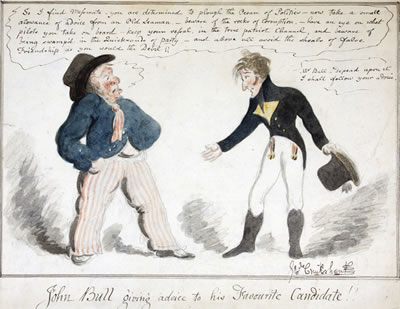 So I find Messmate - you are determined to plough the Ocean of Politics - now take a small
allowance of Advice from an Old Seaman - beware of the rocks of Corruption - have an eye on what
pilots you take on board, keep your vessel, in the true patriot Channel, and beware of
being swamped in the Quicksands of Party - and above all avoid the shoals of false
Friendship as you would the Devil !!
Mr Bull Depend upon it
I shall follow your
Cruikshank
John Bull giving advice to his Favourite Candidate !!